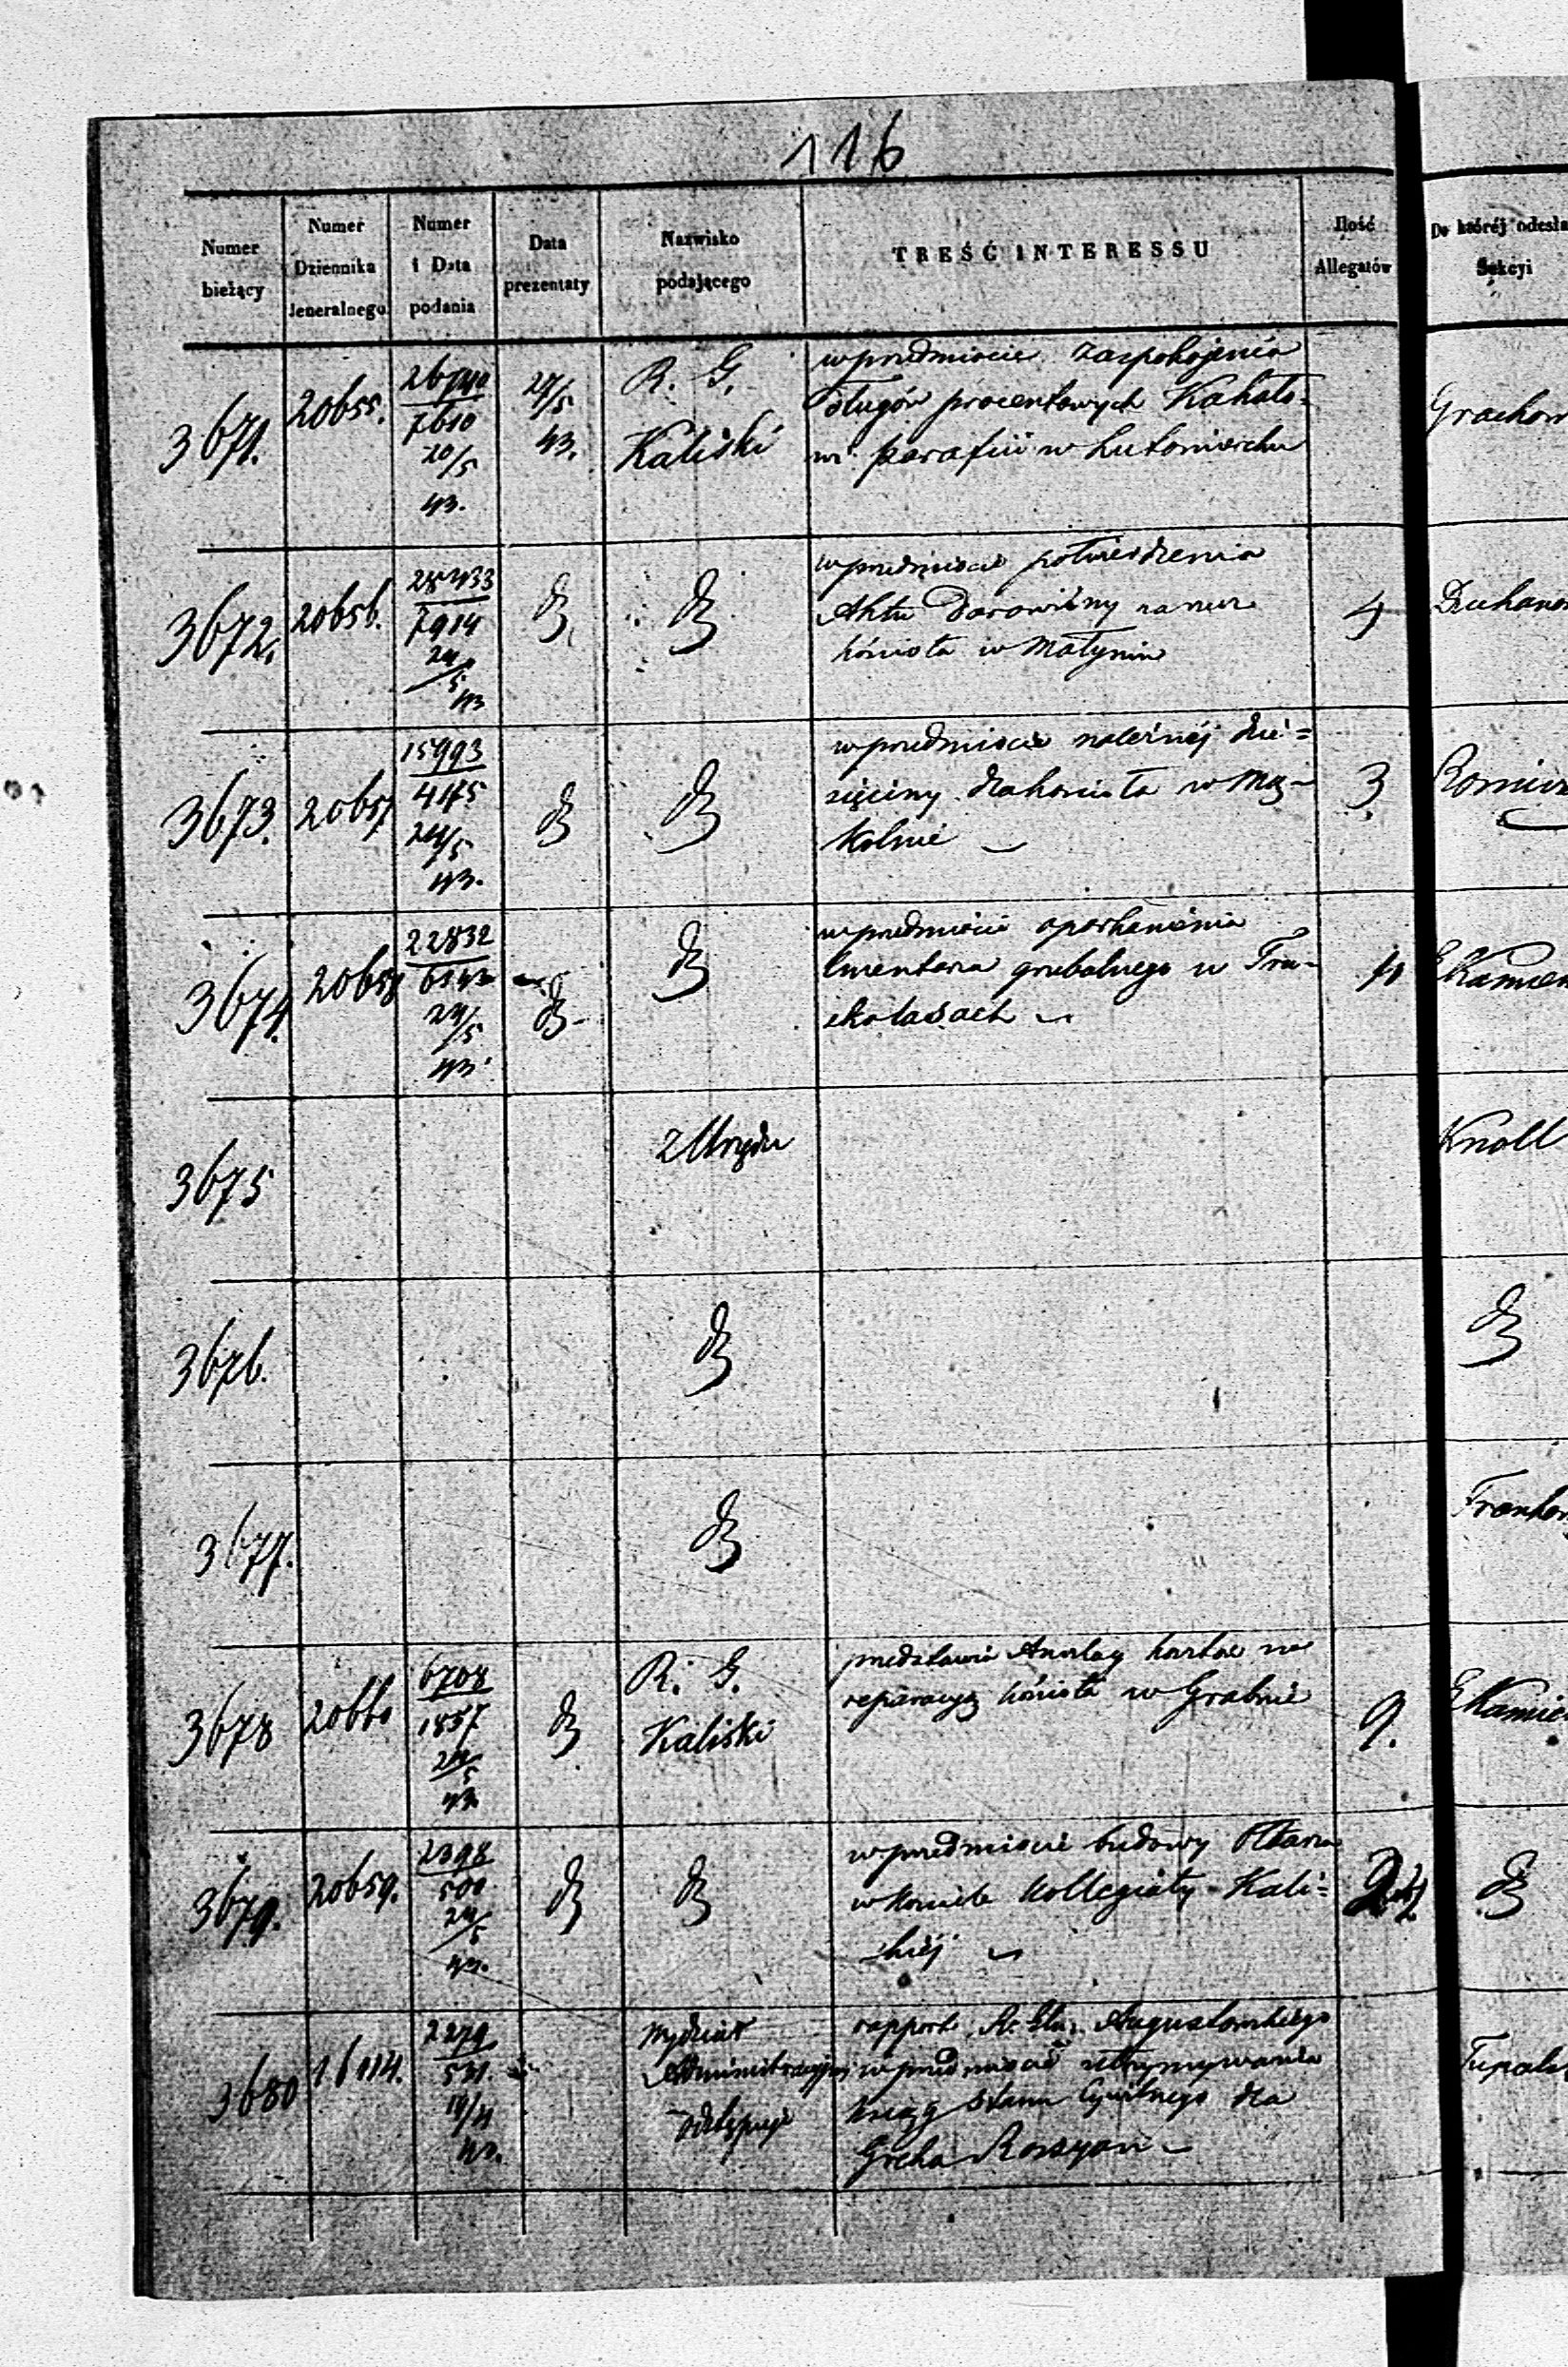 116
Numer bieżący
Numer Dziennika Jeneralnego
Numer i Data podania
Data prezentaty
Nazwisko podającego
TREŚĆ INTERESSU
Ilość Allegatów
Do któréj odesła
Sekcyi
3671.
20655.
7610
20/5
43.
27/5
43.
R. G.
Kaliski
w przedmiocie zaspokojenia
długów procentowych Kahało=
parafii w Lutomiersku
Grachow
3672.
20656.
28433
7914
24/5
43
w przedmiocie potwierdzenia
Aktu Darowizny
kościoła w Małyniu
4
3673.
20657
15993
4175
24/5
43.
w przedmiocie należnéj dzie=
sięciny dla kościoła w
Kolnie
3.
3674.
20658
22832
24/5
43.
w przedmiocie oparkanienia
Cmentarza grzebalnego w Tru=
skolasach
EKamien
3675
Z Urzędu
Knoll
3676.
3677.
3678
20660
6708
1857
24/5
43.
R. G.
Kaliski
przedstawia Anszlag kosztów na
reparacyą kościoła w Grabnie
9.
EKamie
3679.
20659.
2398
500
24/5
43.
w przedmiocie budowy Ołtarza
w kościele Kollegiaty Kali=
skiéj
3680
16114.
2279
531.
43.
Wydział
Administracyjny
odstępuje
rapport R. Gu. Augustowskiego
w przedmiocie utrzymywania
ksiąg Stanu Cywilnego dla
Greko Rossyan